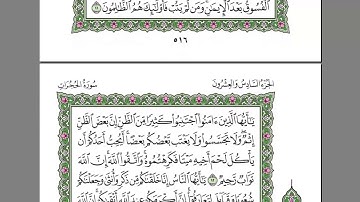 ٱلۡفُسُوقُ بَعۡدَ ٱلۡإِيمَٰنِۚ وَمَن لَّمۡ يَتُبۡ فَأُوْلَٰٓئِكَ هُمُ ٱلظَّٰلِمُونَ ١١
٥١٦
الجزء السادس والعشرون سورة الحجرات
يَٰٓأَيُّهَا ٱلَّذِينَ ءَامَنُواْ ٱجۡتَنِبُواْ كَثِيرٗا مِّنَ ٱلظَّنِّ إِنَّ بَعۡضَ ٱلظَّنِّ
إِثۡمٞۖ وَلَا تَجَسَّسُواْ وَلَا يَغۡتَب بَّعۡضُكُم بَعۡضًاۚ أَيُحِبُّ أَحَدُكُمۡ أَن
يَأۡكُلَ لَحۡمَ أَخِيهِ مَيۡتٗا فَكَرِهۡتُمُوهُۚ وَٱتَّقُواْ ٱللَّهَۚ إِنَّ ٱللَّهَ
تَوَّابٞ رَّحِيمٞ ١٢ يَٰٓأَيُّهَا ٱلنَّاسُ إِنَّا خَلَقۡنَٰكُم مِّن ذَكَرٖ وَأُنثَىٰ وَجَعَلۡنَٰكُمۡ
شُعُوبٗا وَقَبَآئِلَ لِتَعَارَفُوٓاْۚ إِنَّ أَكۡرَمَكُمۡ عِندَ ٱللَّهِ أَتۡقَىٰكُمۡۚ إِنَّ ٱللَّهَ